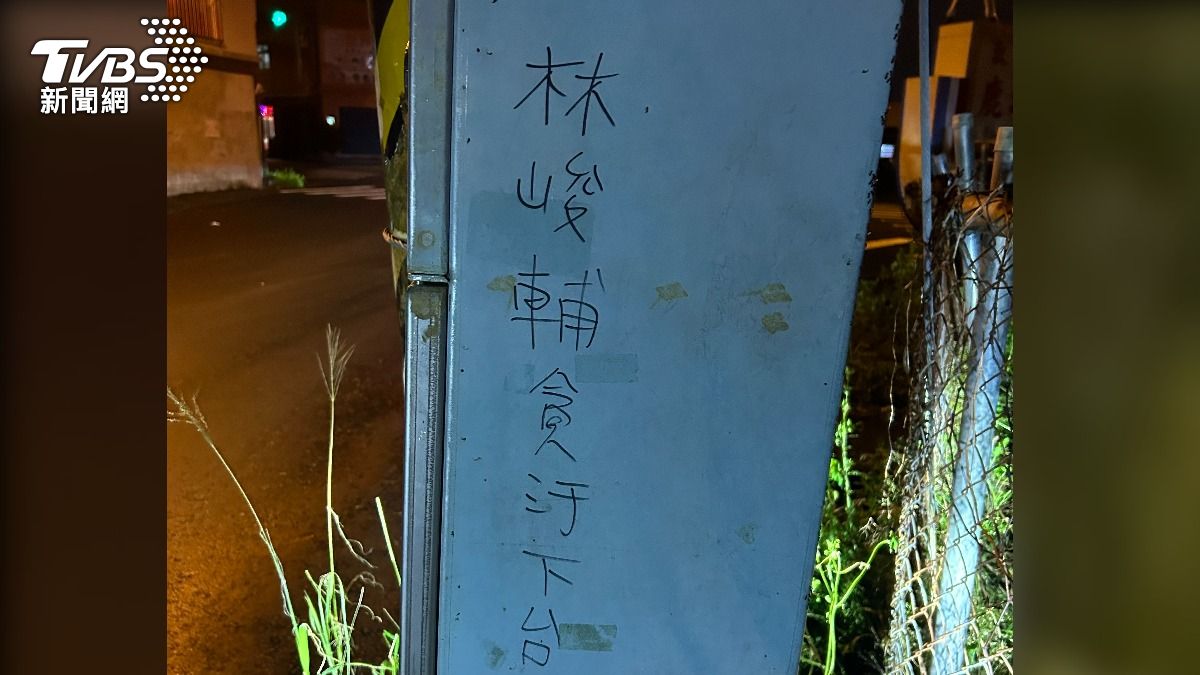 TVBS
新聞網
林峻輔貪汙下台